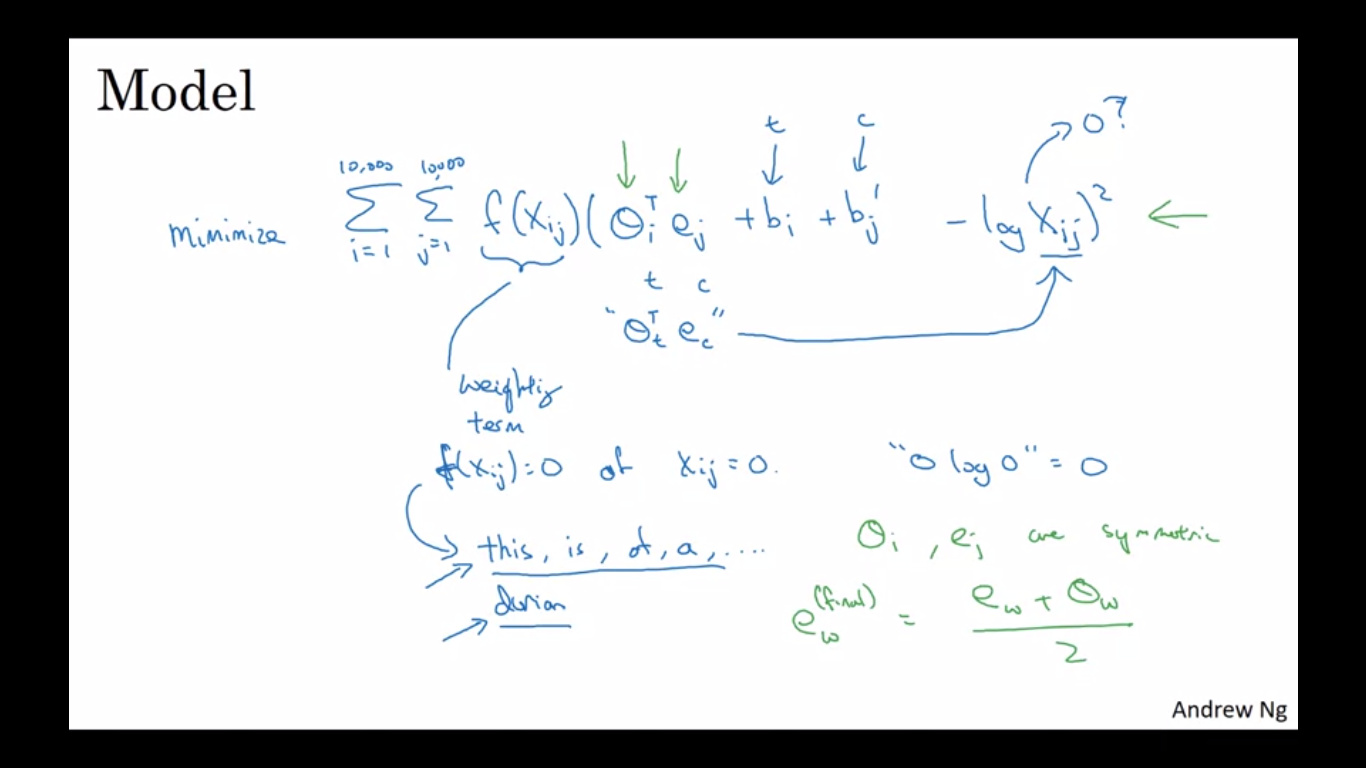 Model
t c 0?
minimize 10,000 ∑ i=1 10,000 ∑ j=1 f(Xij)(θi^T ej + bi + bj' - log Xij)^2
t c
"θt^T ec"
weighting
term
f(Xij)=0 at Xij=0. "0 log 0" = 0
this, is, of, a, .... θi, ej are symmetric
durian ew^(final) = (ew + θw) / 2
Andrew Ng